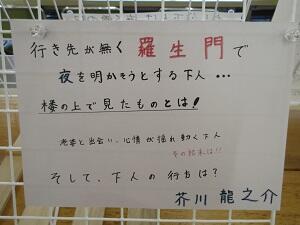 行き先が無く 羅生門で
夜を明かそうとする下人…
楼の上で見たものとは!
老婆と出会い、心情が揺れ動く下人
その結末は!!
そして、下人の行方は?
芥川 龍之介